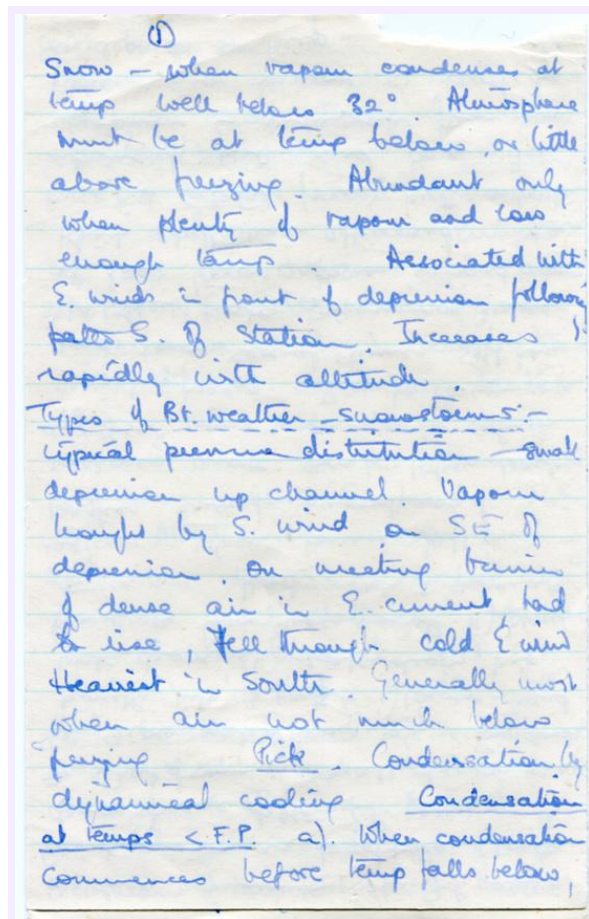 ①
Snow – when vapour condenses at
temp well below 32° Atmosphere
must be at temp below, or little
above freezing. Abundant only
when plenty of vapour and low
enough temp. Associated with
E. winds in front of depression following
paths S. of Station. Increases
rapidly with altitude.
Types of Br. weather – snowstorms:–
typical pressure distribution – small
depression up channel. Vapour
brought by S. wind on SE of
depression. On meeting barrier
of dense air in E. current had
to rise, fell through cold E wind
Heaviest in South. Generally most
when air not much below
freezing Pick. Condensation by
dynamical cooling Condensation
at temps < F.P. a). When condensation
commences before temp falls below,